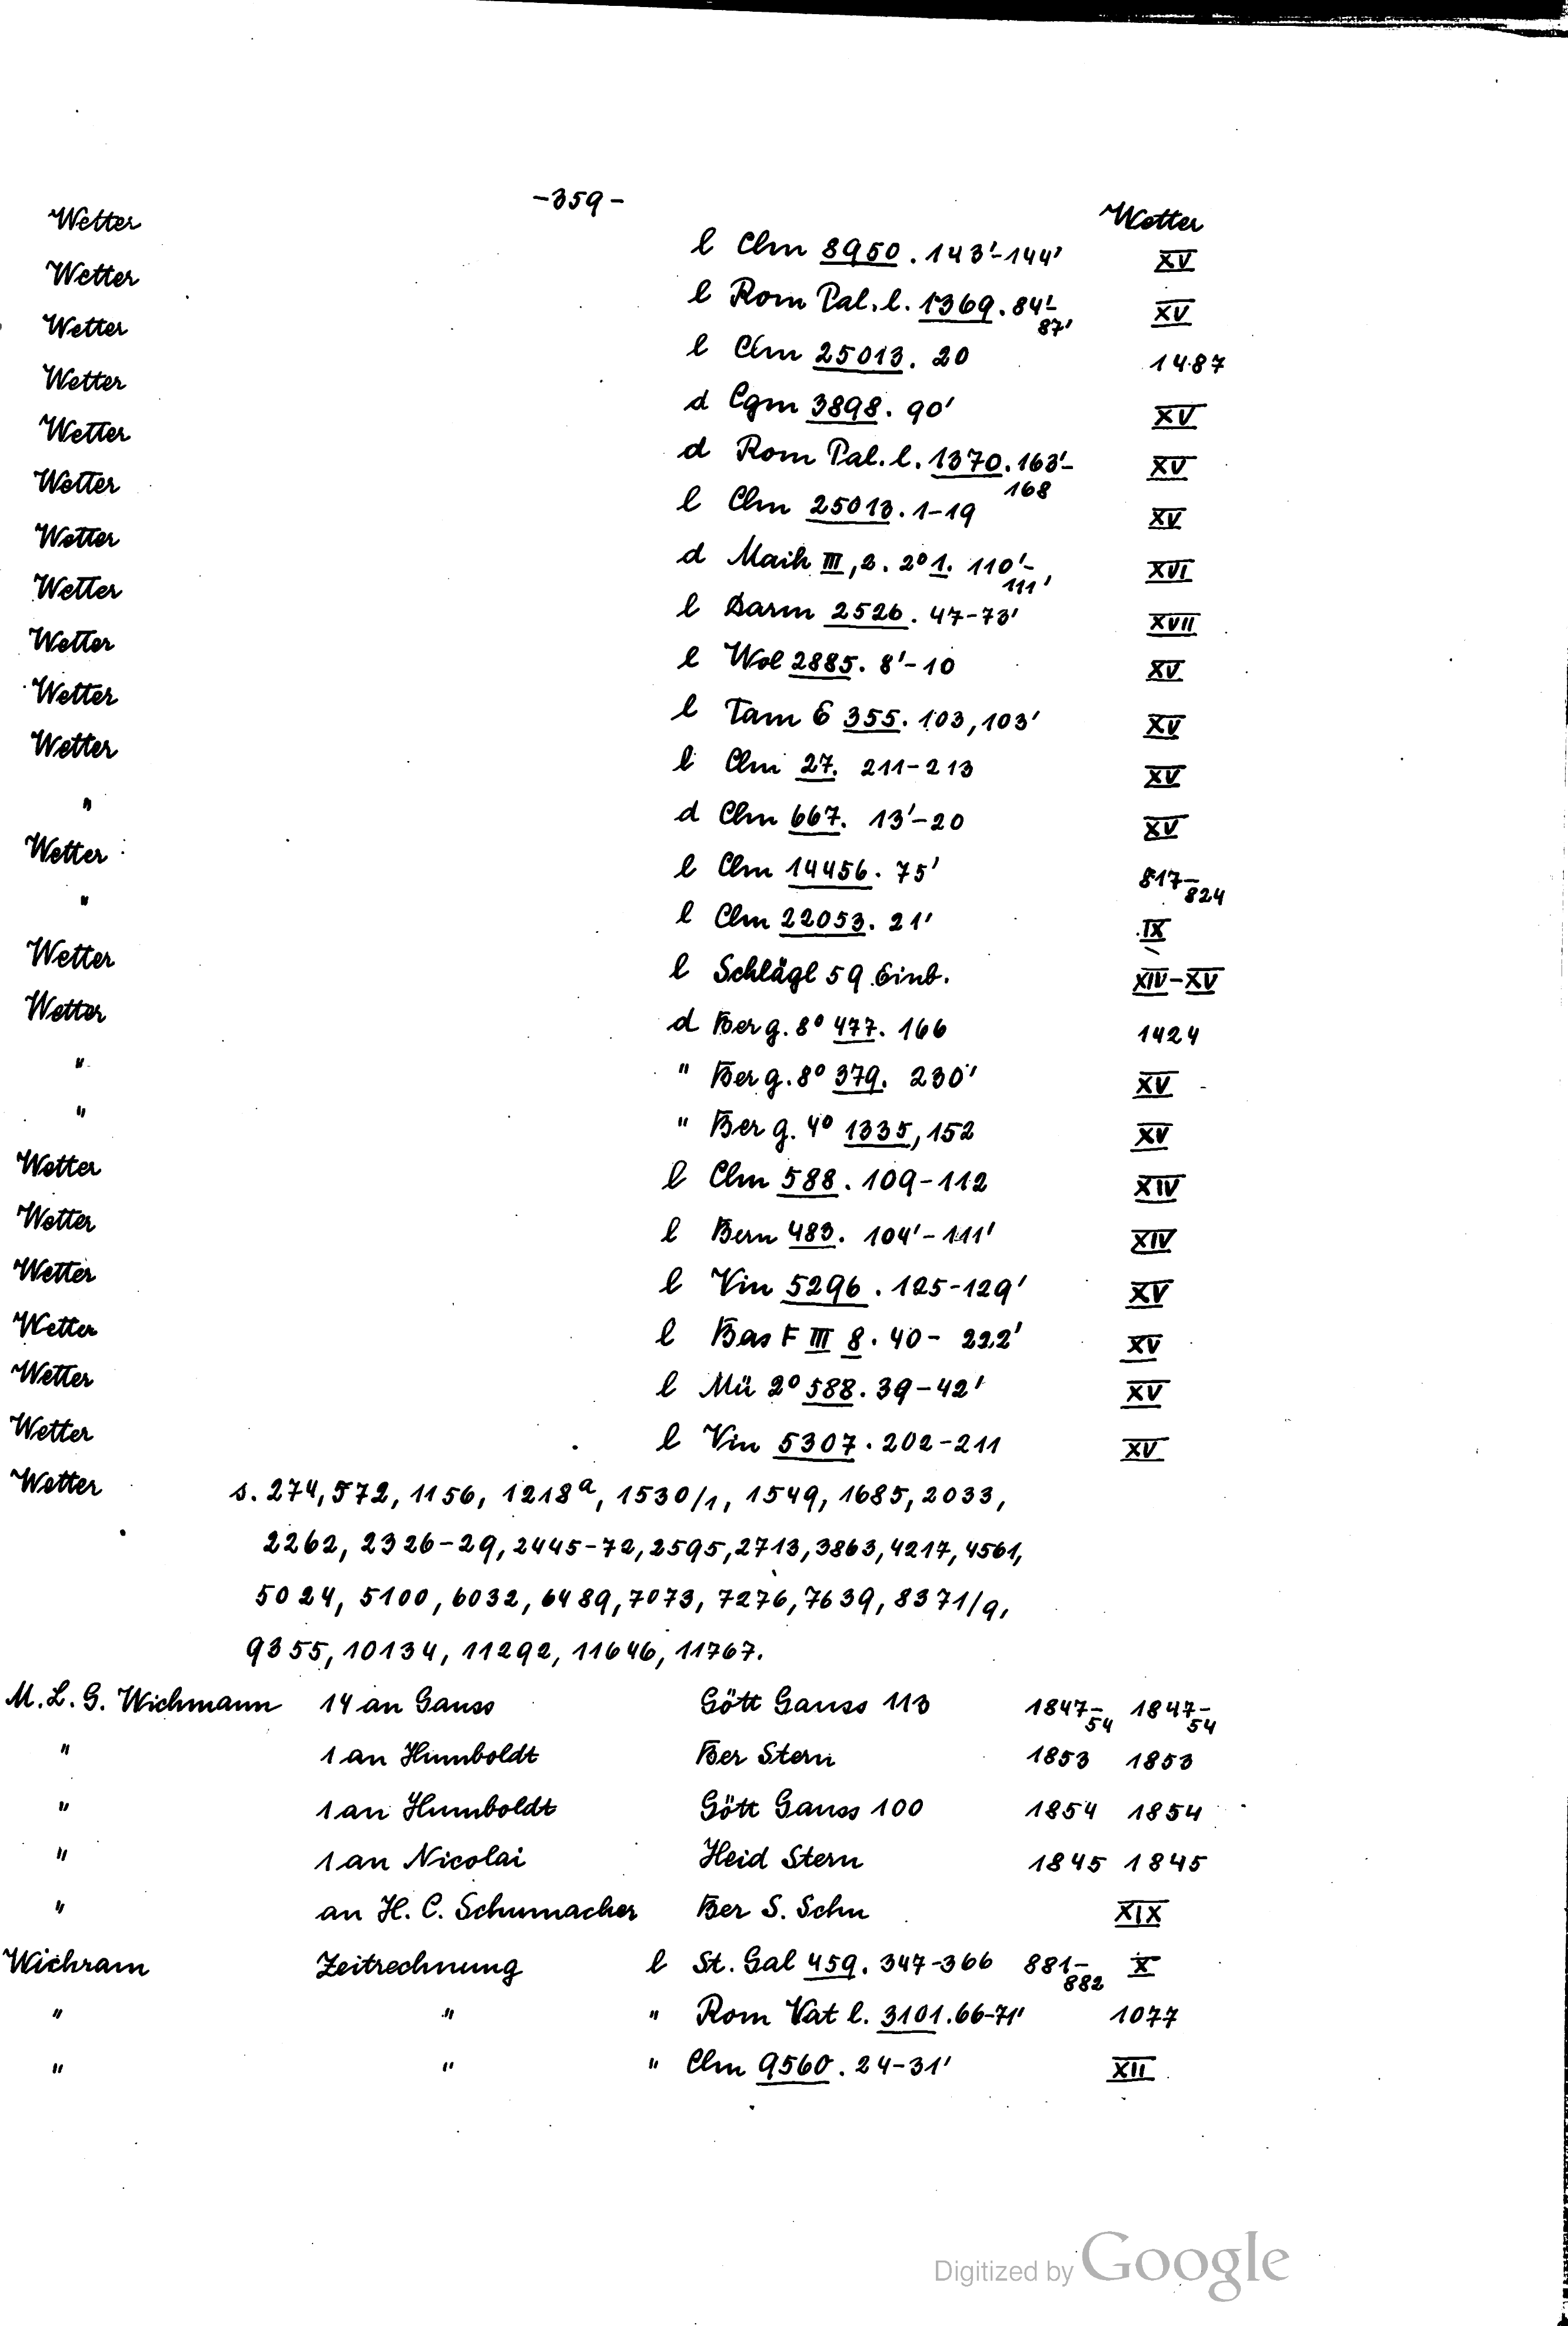 -359-
Wetter
Wetter l Clm 8950. 143'-144' XV
Wetter l Rom Pal. l. 1369. 84'-87' XV
Wetter l Clm 25013. 20 1487
Wetter d Cgm 3898. 90' XV
Wetter d Rom Pal. l. 1370. 163'-168 XV
Wetter l Clm 25013. 1-19 XV
Wetter d Maih III, 2. 2° 1. 110'-111' XVI
Wetter l Darm 2526. 47-73' XVII
Wetter l Wol 2885. 8'-10 XV
Wetter l Tam 6 355. 103, 103' XV
Wetter l Clm 27. 211-213 XV
" d Clm 667. 13'-20 XV
Wetter l Clm 14456. 75' 817-824
" l Clm 22053. 21' IX
Wetter l Schlägl 59 Einb. XIV-XV
Wetter d Ber g. 8° 477. 166 1424
" " Ber g. 8° 379. 230' XV
" " Ber g. 4° 1335, 152 XV
Wetter l Clm 588. 109-112 XIV
Wetter l Bern 483. 104'-111' XIV
Wetter l Vin 5296. 125-129' XV
Wetter l Bas F III 8. 40- 222' XV
Wetter l Mü 2° 588. 39-42' XV
Wetter l Vin 5307. 202-211 XV
Wetter s. 274, 572, 1156, 1218a, 1530/1, 1549, 1685, 2033,
2262, 2326-29, 2445-72, 2595, 2713, 3863, 4217, 4561,
5024, 5100, 6032, 6489, 7073, 7276, 7639, 8371/9,
9355, 10134, 11292, 11646, 11767.
M. L. G. Wichmann 14 an Gauss Gött Gauss 113 1847-54 1847-54
" 1 an Humboldt Ber Stern 1853 1853
" 1 an Humboldt Gött Gauss 100 1854 1854
" 1 an Nicolai Heid Stern 1845 1845
" an H. C. Schumacher Ber S. Schu XIX
Wichram Zeitrechnung l St. Gal 459. 347-366 881-882 X
" " " Rom Vat l. 3101. 66-71' 1077
" " " Clm 9560. 24-31' XII
Digitized by Google